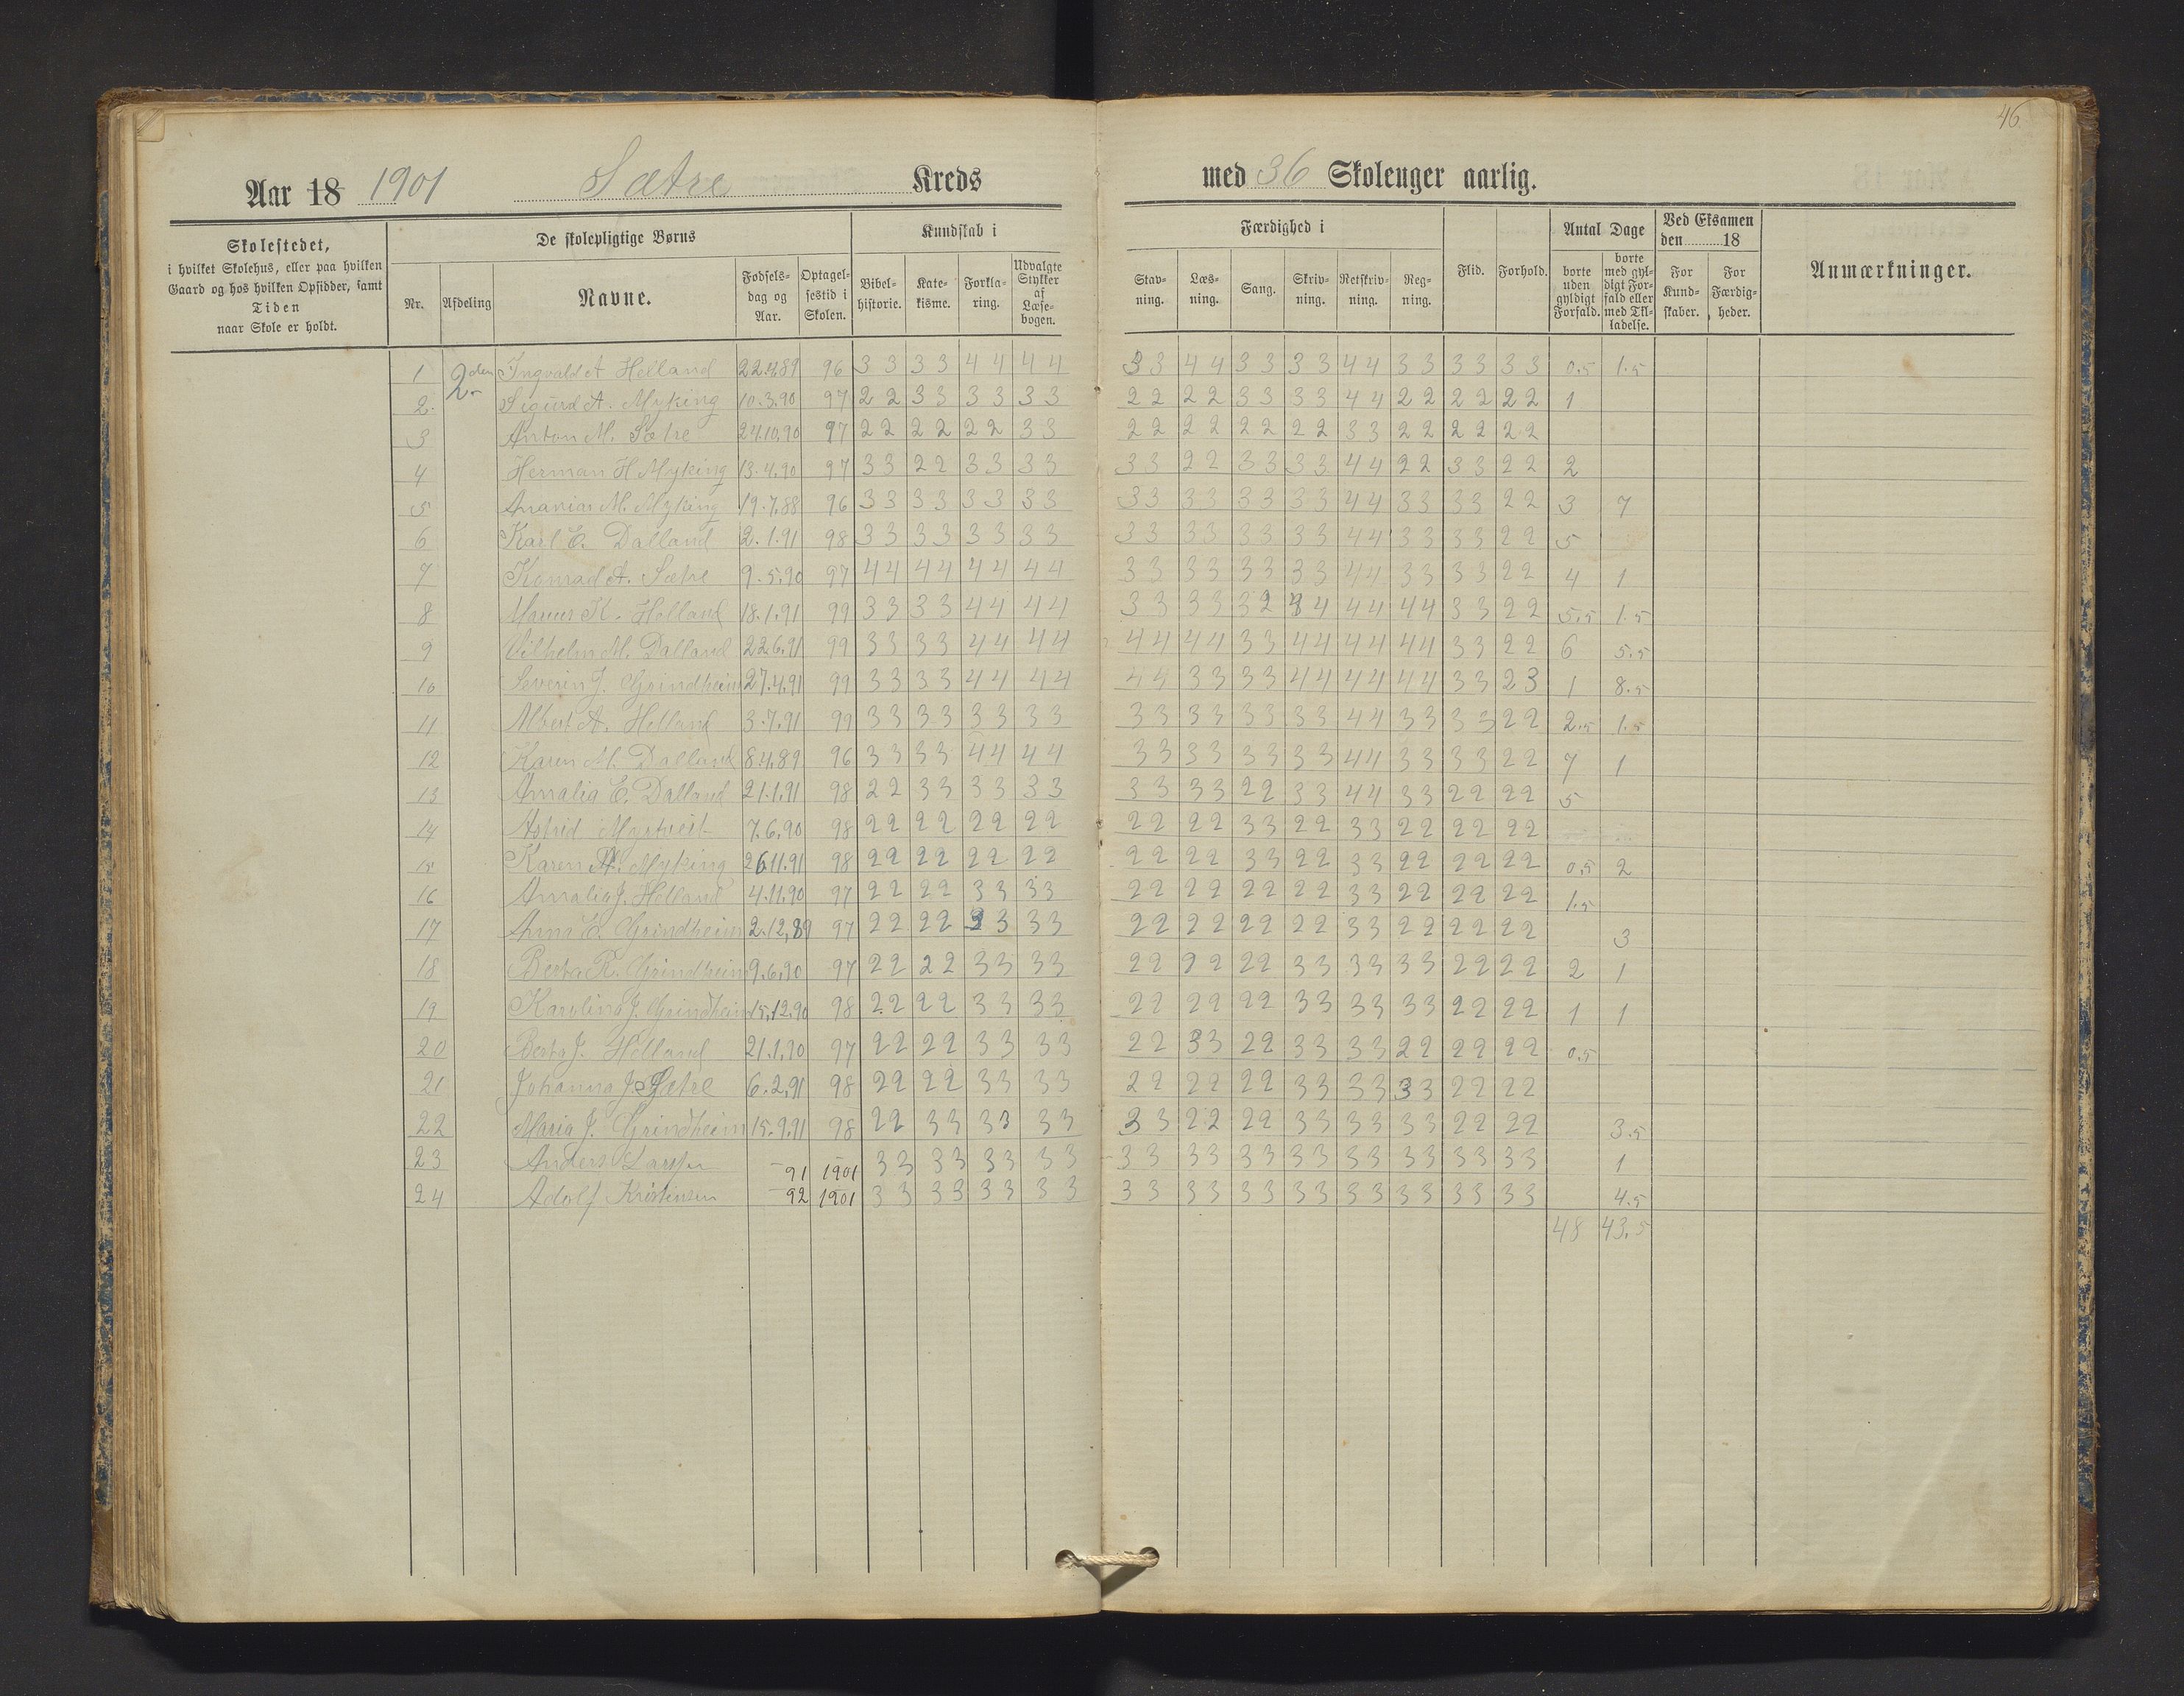 46.
Aar 18 1901 Sætre Kreds
med 36 Skoleuger aarlig.
Skolestedet,
i hvilket Skolehus, eller paa hvilken
Gaard og hos hvilken Opsidder, samt
Tiden
naar Skole er holdt.
De skolepligtige Børns
Nr.
Afdeling
Navne.
Fødsels-
dag og
Aar.
Optagel-
sestid i
Skolen.
Kundskab i
Bibel-
historie.
Kate-
kisme.
Forkla-
ring.
Udvalgte
Stykker
af
Læse-
bogen.
Færdighed i
Stav-
ning.
Læs-
ning.
Sang.
Skriv-
ning.
Retskriv-
ning.
Reg-
ning.
Flid.
Forhold.
Antal Dage
borte
uden
gyldigt
Forfald.
borte
med gyl-
digt For-
fald eller
med Til-
ladelse.
Ved Eksamen
den 18
For
Kund-
skaber.
For
Færdig-
heder.
Anmærkninger.
1 2den Ingvald A Helland 22.4.89 96 3 3 3 3 4 4 4 4 3 3 4 4 3 3 3 3 4 4 3 3 3 3 3 3 0.5 1.5
2. Sigurd A. Myking 10.3.90 97 2 2 3 3 3 3 3 3 2 2 2 2 3 3 3 3 4 4 2 2 2 2 2 2 1
3 Anton M. Sætre 24.10.90 97 2 2 2 2 2 2 3 3 2 2 2 2 2 2 2 2 3 3 2 2 2 2 2 2
4 Herman H Myking 13.4.90 97 3 3 2 2 3 3 3 3 3 3 2 2 3 3 3 3 4 4 2 2 3 3 2 2 2
5 Ananias M. Myking 19.7.88 96 3 3 3 3 3 3 3 3 3 3 3 3 3 3 3 3 4 4 3 3 3 3 2 2 3 7
6 Karl E. Dalland 2.1.91 98 3 3 3 3 3 3 3 3 3 3 3 3 3 3 3 3 4 4 3 3 3 3 2 2 5
7 Konrad A. Sætre 9.5.90 97 4 4 4 4 4 4 4 4 3 3 3 3 3 3 3 3 4 4 3 3 3 3 2 2 4 1
8 K. Helland 18.1.91 99 3 3 3 3 4 4 4 4 3 3 3 3 3 2 3 4 4 4 4 4 3 3 2 2 5.5 1.5
9 Vilhelm M. Dalland 22.6.91 99 3 3 3 3 4 4 4 4 4 4 4 4 3 3 4 4 4 4 4 4 3 3 2 2 6 5.5
10 Severin J. Grindheim 27.4.91 99 3 3 3 3 4 4 4 4 4 4 3 3 3 3 4 4 4 4 4 4 3 3 2 3 1 8.5
11 Albert A. Helland 3.7.91 99 3 3 3 3 3 3 3 3 3 3 3 3 3 3 3 3 4 4 3 3 3 3 2 2 2.5 1.5
12 Karen M. Dalland 8.4.89 96 3 3 3 3 4 4 4 4 3 3 3 3 3 3 3 3 4 4 3 3 3 3 2 2 7 1
13 Amalia E. Dalland 21.1.91 98 2 2 3 3 3 3 3 3 3 3 3 3 2 2 3 3 4 4 3 3 2 2 2 2 5
14 Astrid Myrtveit 7.6.90 98 2 2 2 2 2 2 2 2 2 2 2 2 3 3 2 2 3 3 2 2 2 2 2 2
15 Karen M. Myking 26.11.91 98 2 2 2 2 2 2 2 2 2 2 2 2 3 3 2 2 3 3 2 2 2 2 2 2 0.5 2
16 Amalia J. Helland 4.11.90 97 2 2 2 2 3 3 3 3 2 2 2 2 2 2 2 2 3 3 2 2 2 2 2 2 1.5
17 Anna E. Grindheim 2.12.89 97 2 2 2 2 3 3 3 3 2 2 2 2 2 2 2 2 3 3 2 2 2 2 2 2 3
18 Berta R. Grindheim 9.6.90 97 2 2 2 2 3 3 3 3 2 2 2 2 2 2 3 3 3 3 3 3 2 2 2 2 2 1
19 Karolina J. Grindheim 15.12.90 98 2 2 2 2 3 3 3 3 2 2 2 2 2 2 3 3 3 3 3 3 2 2 2 2 1 1
20 Berta J. Helland 21.1.90 97 2 2 2 2 3 3 3 3 2 2 3 3 2 2 3 3 3 3 2 2 2 2 2 2 0.5
21 Johanna J. Sætre 6.2.91 98 2 2 2 2 3 3 3 3 2 2 2 2 2 2 3 3 3 3 3 3 2 2 2 2
22 Maria J. Grindheim 15.9.91 98 2 2 3 3 3 3 3 3 3 3 2 2 2 2 3 3 3 3 3 3 2 2 2 2 3.5
23 Anders Larsen 91 1901 3 3 3 3 3 3 3 3 3 3 3 3 3 3 3 3 3 3 3 3 3 3 3 3 1
24 Adolf Kristensen 92 1901 3 3 3 3 3 3 3 3 3 3 3 3 3 3 3 3 3 3 3 3 3 3 3 3 4.5
48 43.5